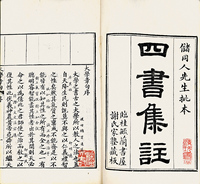 儲同人先生批本
四書集註
謝氏家塾藏板
大學章句序
大學之書古之大學所以教人之法也蓋
自天降生民則既莫不與之以仁義禮智
之性矣然其氣質之稟或不能齊是以不
能皆有以知其性之所有而全之也一有
聰明睿智能盡其性者出於其間則天必
命之以為億兆之君師使之治而教之以
復其性此伏羲神農黃帝堯舜所以繼天